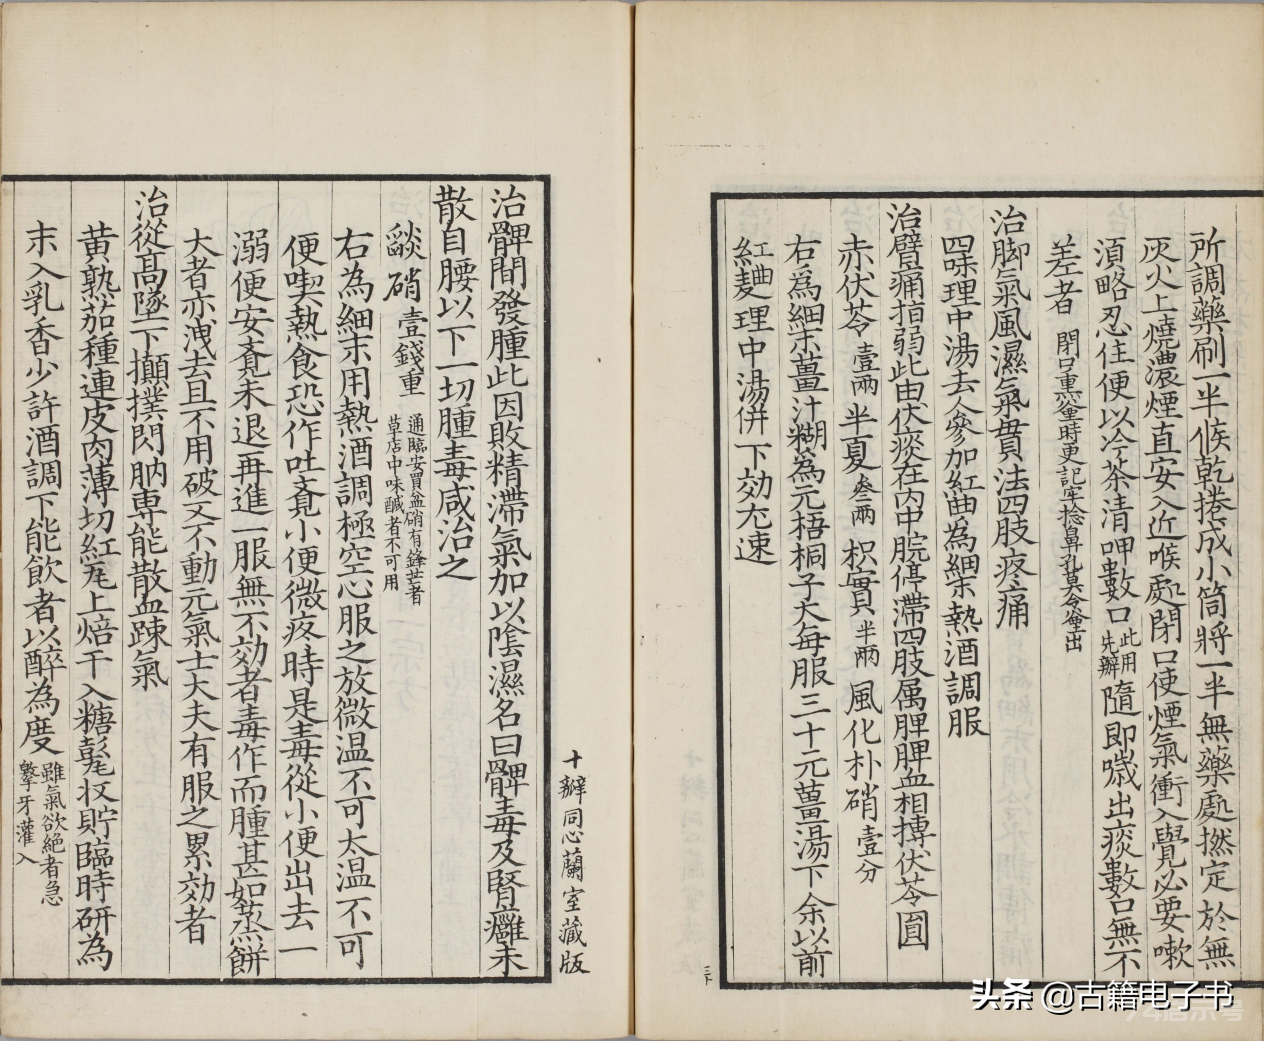 所調藥刷一半候乾捲成小筒將一半無藥處撚定於無
灰火上燒濃煙直安入近喉處閉口使煙氣衝入覺必要嗽
須略忍住便以冷茶清呷數口此用先辦隨即嗽出痰數口無不
差者閉口熏壅時更記牢捻鼻孔莫令壅出
治脚氣風濕氣貫法四肢疼痛
四味理中湯去人參加紅曲為細末熱酒調服
治臂痛指弱此由伏痰在内中脘停滯四肢属脾脾血相搏伏苓圓
赤伏苓壹兩半夏叁兩枳實半兩風化朴硝壹分
右為細末薑汁糊為元梧桐子大每服三十元薑湯下余以前
紅麯理中湯併下効尤速
三十
十瓣同心蘭室藏版
治髀間發腫此因敗精滯氣加以陰濕名曰髀毒及腎癰未
散自腰以下一切腫毒咸治之
燄硝壹錢重通臨安買盆硝有鋒芒者草店中味鹹者不可用
右為細末用熱酒調極空心服之放微温不可太温不可
便喫熱食恐作吐覔小便微疼時是毒從小便出去一
溺便安覔未退再進一服無不効者毒作而腫甚如蒸餅
大者亦洩去且不用破又不動元氣士大夫有服之累効者
治從髙墜下攧撲閃肭専能散血踈氣
黄熟茄種連皮肉薄切紅瓦上焙干入糖髦收貯臨時研為
末入乳香少許酒調下能飲者以醉為度雖氣欲絶者急擊牙灌入
头条 @古籍电子书